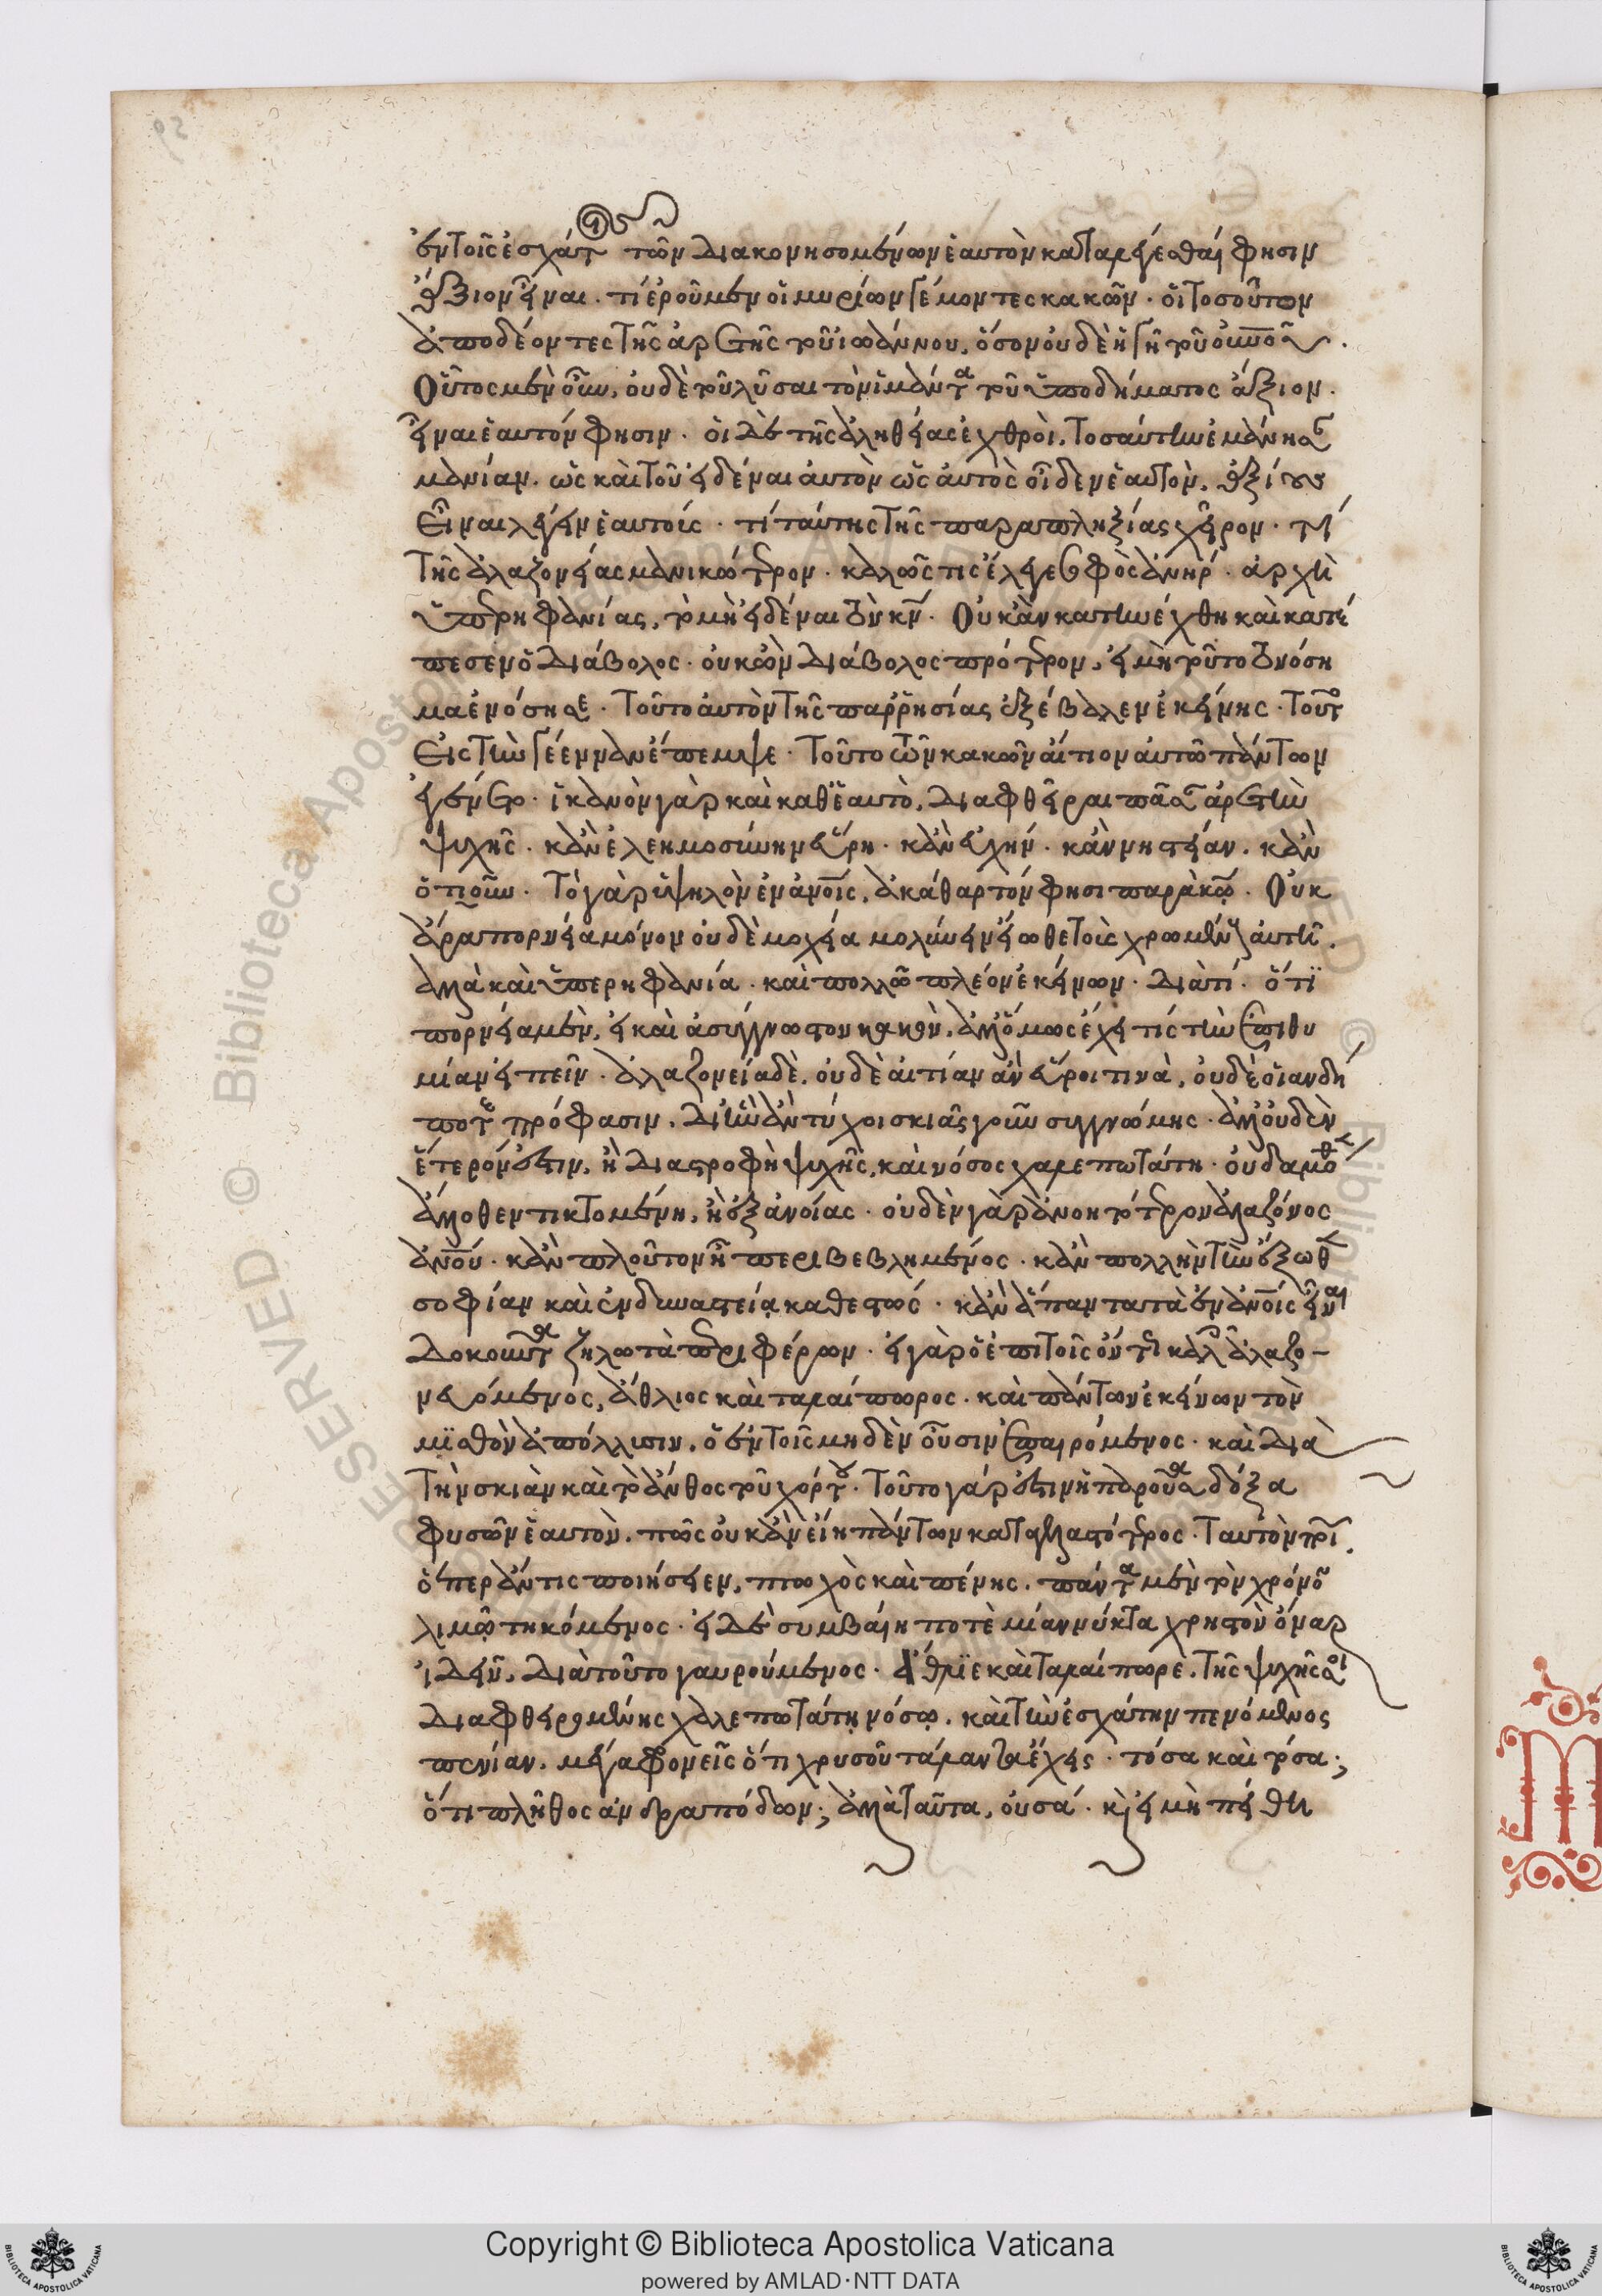 ἐν τοῖς ἐσχάτοις τῶν διακονησομένων ἑαυτὸν καταλέγεσθαί φησιν
ἄξιον εἶναι. τί ἐροῦμεν οἱ μυρίων γέμοντες κακῶν. οἱ τοσοῦτον
ἀποδέοντες τῆς ἀρετῆς τοῦ ἰωάννου, ὅσον οὐδὲ ἡ γῆ τοῦ οὐνοῦ.
Οὗτος μὲν οὖν, οὐδὲ τοῦ λῦσαι τὸν ἱμάντα τοῦ ὑποδήματος ἄξιον.
εἶναι ἑαυτόν φησιν. οἱ δὲ τῆς ἀληθείας ἐχθροὶ, τοσαύτην ἐμάνησαν
μανίαν. ὡς καὶ τοῦ εἰδέναι αὐτὸν ὡς αὐτὸς οἶδεν ἑαυτὸν, ἀξίους
εἶναι λέγειν ἑαυτούς. τί ταύτης τῆς παραπληξίας χεῖρον. τί
τῆς ἀλαζονείας μανικώτερον. καλῶς τις ἔλεγε σοφὸς ἀνήρ. ἀρχὴ
ὑπερηφανίας, τὸ μὴ εἰδέναι τὸν κν. Οὐκ ἂν κατηνέχθη καὶ κατέ
πεσεν ὁ διάβολος. οὐκ ὢν διάβολος πρότερον, εἰ μὴ τοῦτο τὸ νόση
μα ἐνόσησε. Τοῦτο αὐτὸν τῆς παρρησίας ἐξέβαλεν ἐκείνης. Τοῦτο
εἰς τὴν γέενναν ἔπεμψε. Τοῦτο τῶν κακῶν αἴτιον αὐτῶ πάντων
ἐγένετο. ἱκανὸν γὰρ καὶ καθ' ἑαυτὸ, διαφθεῖραι πᾶσαν ἀρετὴν
ψυχῆς. κἂν ἐλεημοσύνην εὕρη. κἂν εὐχήν. κἂν νηστείαν. κἂν
ὁτιοῦν. Τὸ γὰρ ὑψηλὸν ἐν ἀνοις, ἀκάθαρτόν φησι παρὰ κω. Οὐκ
ἄρα πορνεία μόνον οὐδὲ μοιχεία μολύνειν εἴωθε τοῖς χρωμένους αὐτῆ.
ἀλλὰ καὶ ὑπερηφανία. καὶ πολλῶ πλέον ἐκείνων. διατί. ὅτι
πορνεία μὲν, εἰ καὶ ἀσύγγνωστον κακὸν, ἀλλ' ὅμως ἔχει τίς τὴν ἐπιθυ
μίαν εἰπεῖν. ἀλαζονεία δὲ, οὐδὲ αἰτίαν ἂν εὕροι τινὰ, οὐδὲ οἵαν δή
ποτε πρόφασιν, δι' ἣν ἂν τύχοι σκιᾶς γοῦν συγγνώμης. ἀλλ' οὐδὲν
ἕτερόν ἐστιν, ἢ διαστροφὴ ψυχῆς, καὶ νόσος χαλεπωτάτη. οὐδαμόθεν
ἄλλοθεν τικτομένη, ἢ ἐξ ἀνοίας. οὐδὲν γὰρ ἀνοητότερον ἀλαζόνος
ἀνου. κἂν πλοῦτον ἦ περιβεβλημένος. κἂν πολλὴν τὴν ἔξωθεν
σοφίαν καὶ ἐν δυναστεία καθεστώς. κἂν ἅπαντα τὰ ἐν ἀνοις εἶναι
δοκοῦντα ζηλωτὰ περιφέρων. εἰ γὰρ ὁ ἐπὶ τοῖς ὄντως καλοῖς ἀλαζο-
νευόμενος, ἄθλιος καὶ ταλαίπωρος. καὶ πάντων ἐκείνων τὸν
μισθὸν ἀπόλλυσιν, ὁ ἐν τοῖς μηδὲν οὖσιν ἐπαιρόμενος. καὶ διὰ
τὴν σκιὰν καὶ τὸ ἄνθος τοῦ χόρτου. Τοῦτο γάρ ἐστιν ἡ παροῦσα δόξα
φυσῶν ἑαυτὸν. πῶς οὐκ ἂν εἴη πάντων καταγελαστότερος. Ταυτὸν ποιεῖ.
ὅπερ ἄν τις ποιήσειεν, πτωχὸς καὶ πένης. πάντα μὲν τὸν χρόνον
λιμῶ τηκόμενος. εἰ δὲ συμβαίη ποτὲ μίαν νύκτα χρηστὸν ὄναρ
ἰδεῖν, διὰ τοῦτο γαυρούμενος. ἄθλιε καὶ ταλαίπωρε. τῆς ψυχῆς σοι
διαφθειρομένης χαλεπωτάτη νόσω. καὶ τὴν ἐσχάτην πενόμενος
πενίαν. μέγα φρονεῖς ὅτι χρυσοῦ τάλαντα ἔχεις. τόσα καὶ τόσα;
ὅτι πλῆθος ἀνδραπόδων; ἀλλὰ ταῦτα, οὐ σά. κὶ εἰ μὴ πείθη